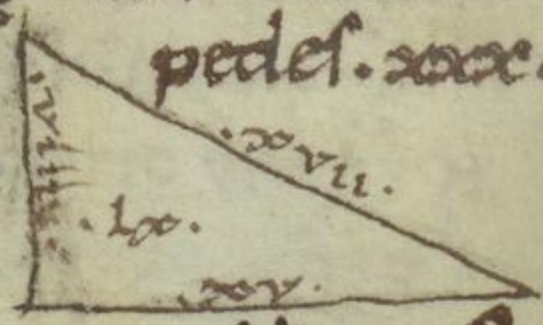 pedes. xxx.
.viii.
.xvii.
.lx.
.xv.